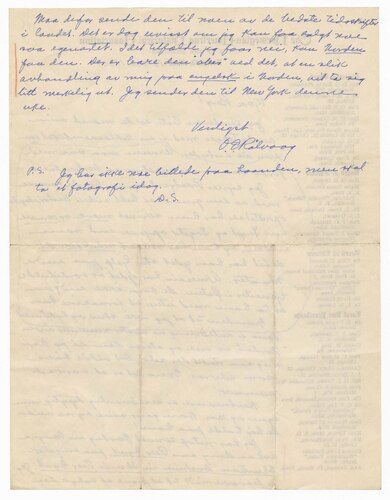 Maa derfor sende den til noen av de bedste tidsskrifter
i landet. Det er dog uvisst om jeg kan faa solgt noe
saa egenartet. I det tilfælde jeg faar nei, kan Norden
faa den. Der er bare dein "aber" ved det, at en slik
avhandling av mig paa engelsk i Norden, vil ta sig
litt merkelig ut. Jeg sender den til New York denne
uke.
Venligst
O. E. Rølvaag
P.S. Jeg har ikke noe billede paa haanden, men skal
ta et fotografi idag.
D.S.